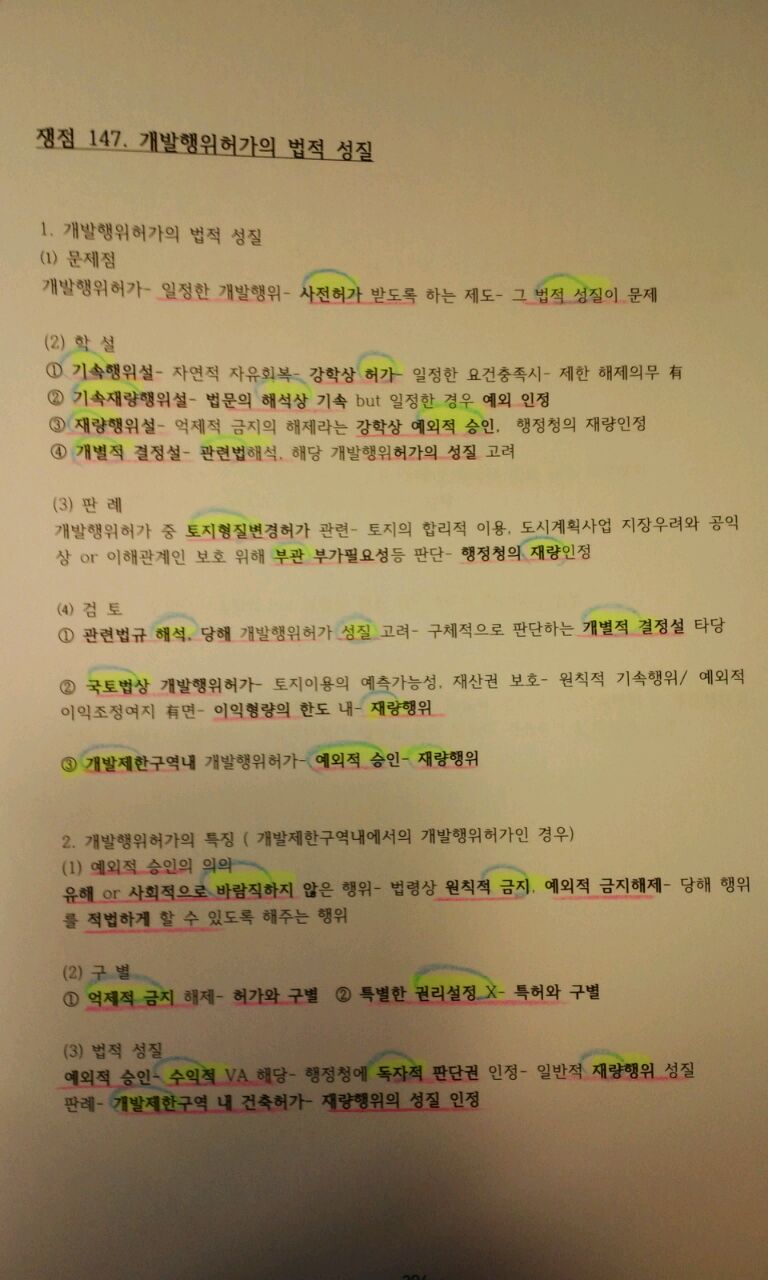 쟁점 147. 개발행위허가의 법적 성질
1. 개발행위허가의 법적 성질
(1) 문제점
개발행위허가- 일정한 개발행위- 사전허가 받도록 하는 제도- 그 법적 성질이 문제
(2) 학 설
① 기속행위설- 자연적 자유회복- 강학상 허가- 일정한 요건충족시- 제한 해제의무 有
② 기속재량행위설- 법문의 해석상 기속 but 일정한 경우 예외 인정
③ 재량행위설- 억제적 금지의 해제라는 강학상 예외적 승인, 행정청의 재량인정
④ 개별적 결정설- 관련법해석, 해당 개발행위허가의 성질 고려
(3) 판 례
개발행위허가 중 토지형질변경허가 관련- 토지의 합리적 이용, 도시계획사업 지장우려와 공익
상 or 이해관계인 보호 위해 부관 부가필요성등 판단- 행정청의 재량인정
(4) 검 토
① 관련법규 해석, 당해 개발행위허가 성질 고려- 구체적으로 판단하는 개별적 결정설 타당
② 국토법상 개발행위허가- 토지이용의 예측가능성, 재산권 보호- 원칙적 기속행위/ 예외적
이익조정여지 有면- 이익형량의 한도 내- 재량행위
③ 개발제한구역내 개발행위허가- 예외적 승인- 재량행위
2. 개발행위허가의 특징 ( 개발제한구역내에서의 개발행위허가인 경우)
(1) 예외적 승인의 의의
유해 or 사회적으로 바람직하지 않은 행위- 법령상 원칙적 금지, 예외적 금지해제- 당해 행위
를 적법하게 할 수 있도록 해주는 행위
(2) 구 별
① 억제적 금지 해제- 허가와 구별 ② 특별한 권리설정 X- 특허와 구별
(3) 법적 성질
예외적 승인- 수익적 VA 해당- 행정청에 독자적 판단권 인정- 일반적 재량행위 성질
판례- 개발제한구역 내 건축허가- 재량행위의 성질 인정